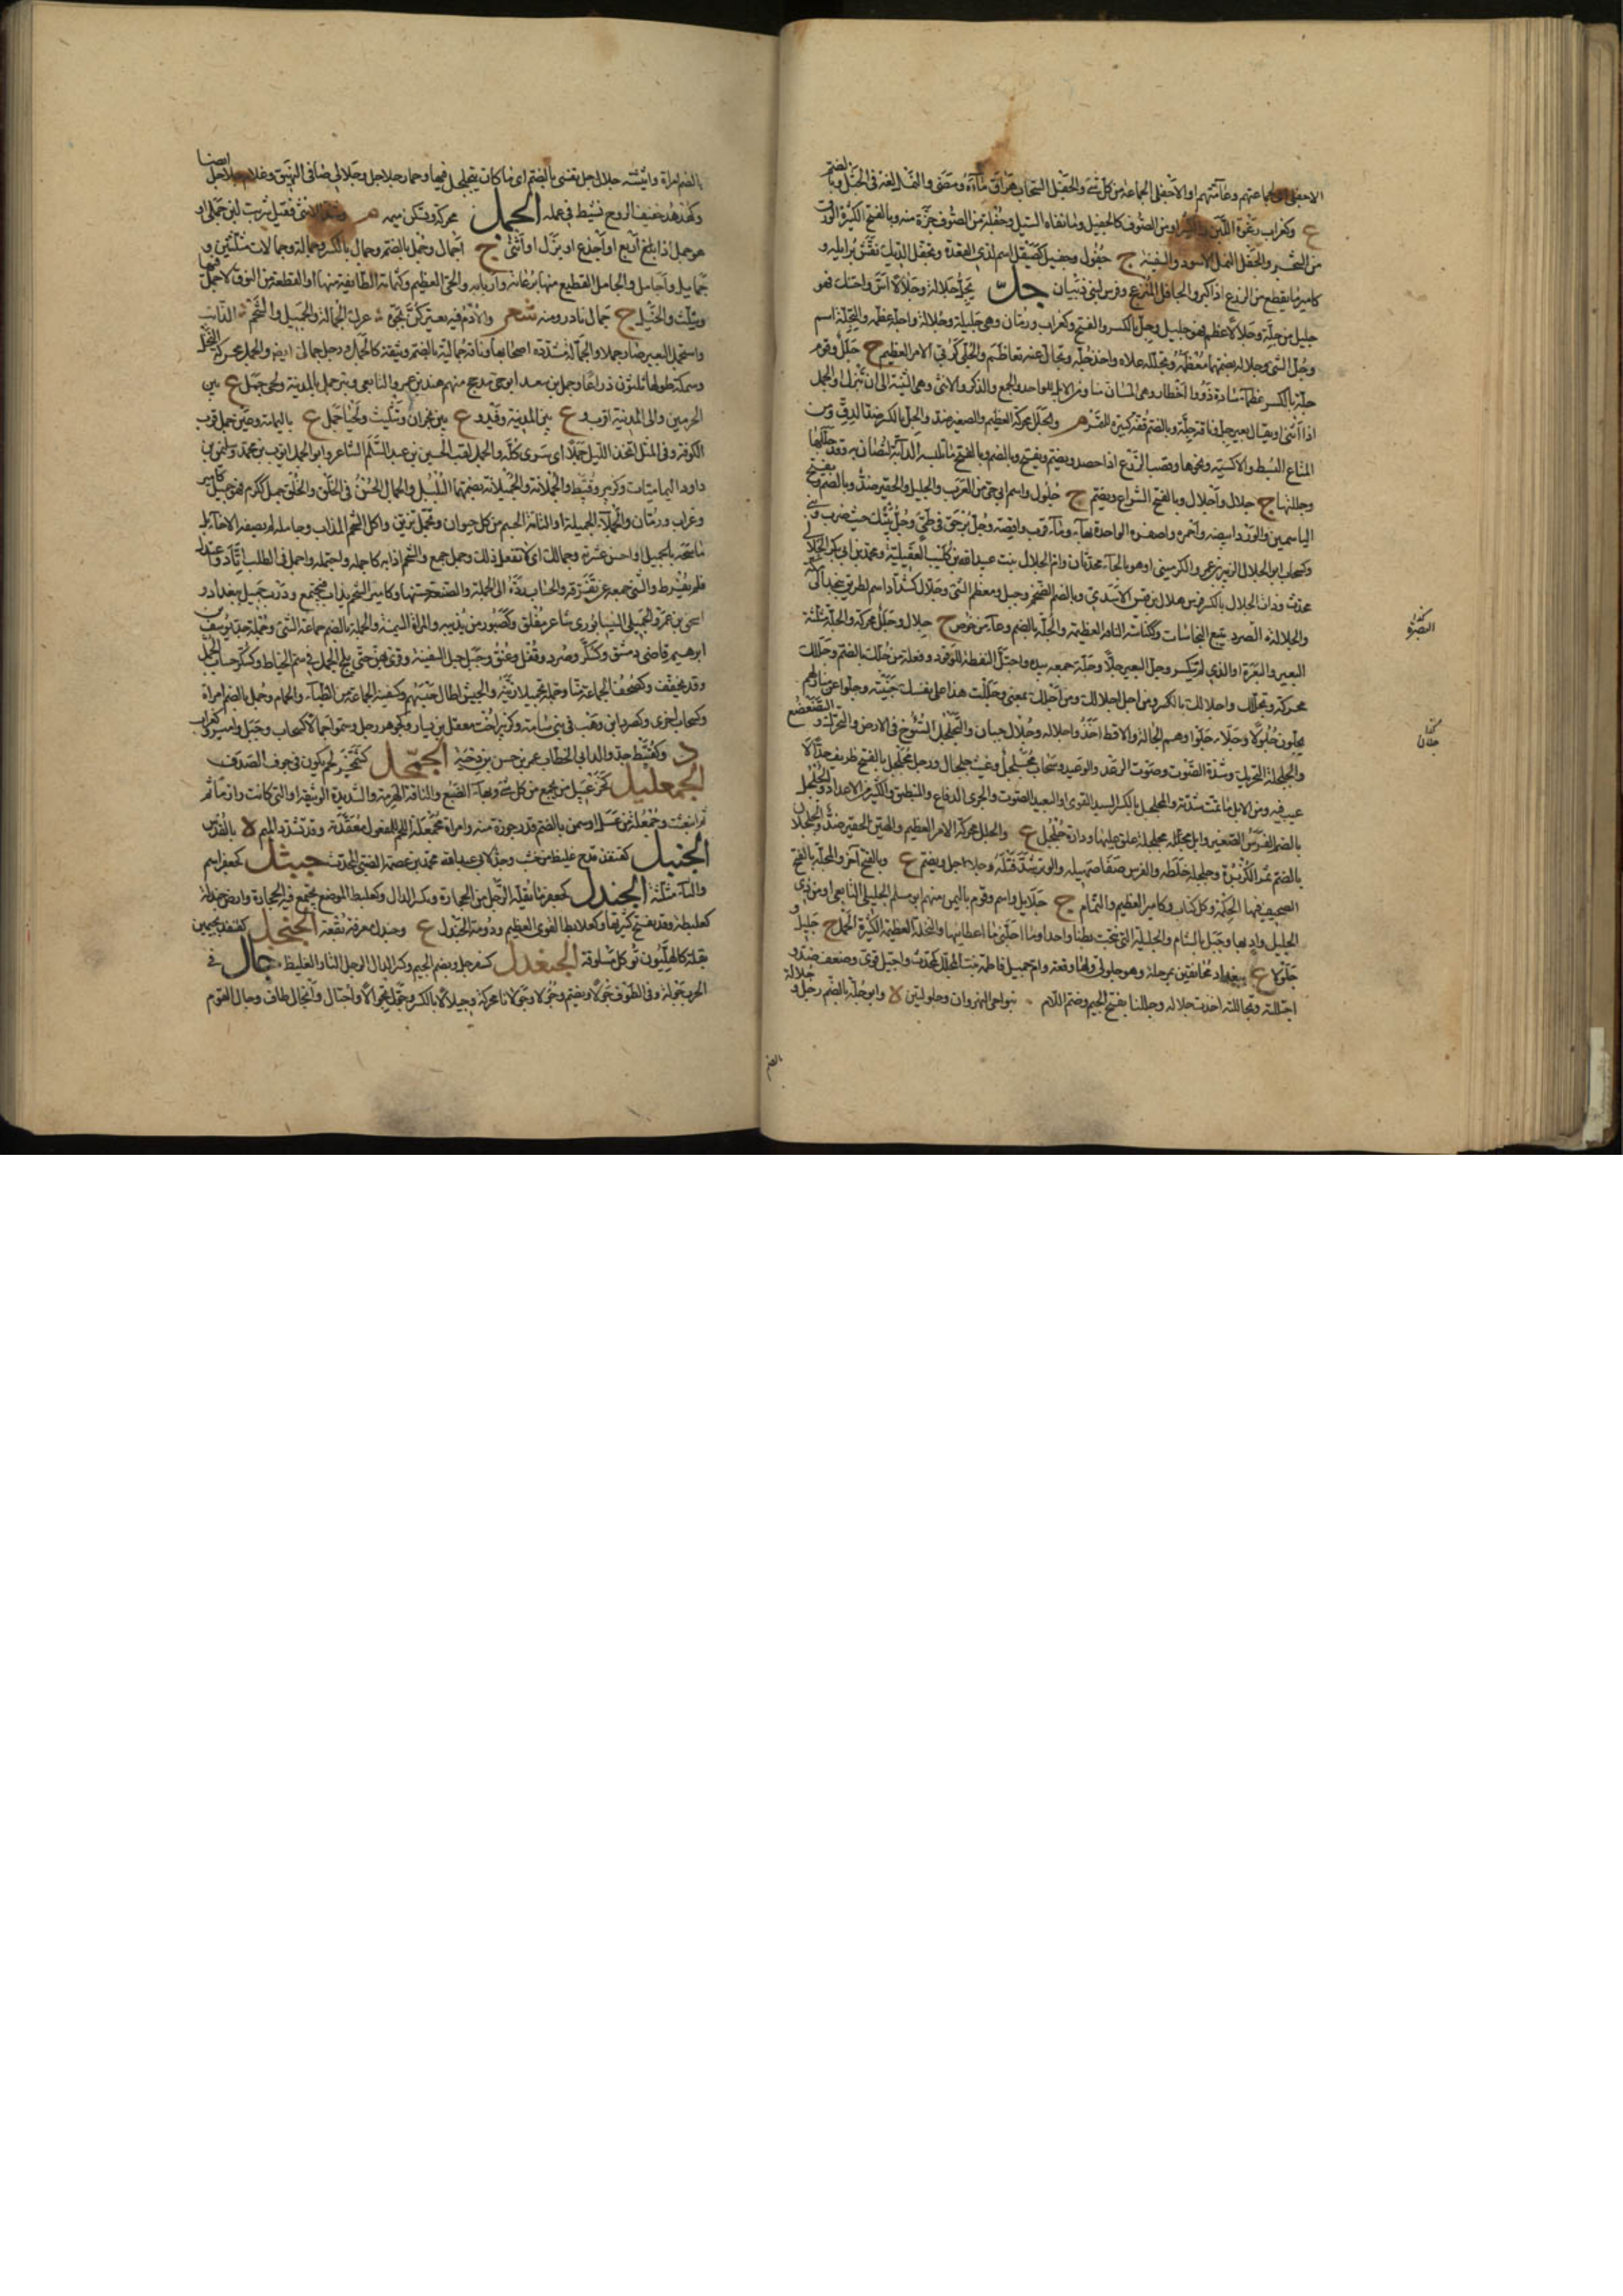 الاجفلى بجماعتهم وعامتهم او الاجفلى الجماعة من كل شئ والجفل السحاب هراق ماءه ومضى والنمل لغة فى الجثل وبالضم
ع وكغراب رغوة اللبن ومن الصوف كالجفيل وما نفاه السيل وجفلة من الصوف جزة منه وبالفتح الكثيرة الورق
من الشجر والجفل النمل الاسود والسفينة ج جفول وجيفل كصيقل اسم لذى القعدة وتجفل الديك نفش برائله و
كامير ما يقطع من الزرع اذا كبر والجافل المنزعج وفرس لبنى ذبيان جل يجل جلالة وجلالا اسن واحتنك فهو
جليل من جلة وجلالا عظم فهو جليل وجل بالكسر والفتح وكغراب ورمان وهى جليلة وجلالة واجله عظمه والتجلة اسم
وجل الشئ وجلاله بضمهما معظمه وتجلله علاه واخذ جله وتجال عنه تعاظم والجلى كربى الامر العظيم ج جلل وقوم
جلة بالكسر عظماء سادة ذوو اخطار وهى المسان منا ومن الابل للواحد والجمع والذكر والانثى وهى الثنية الى ان تبزل او الجمل
اذا اثنى او يقال بعير جل وناقة جلة وبالضم قفة كبيرة للتمر والجلل محركة العظيم والصغير ضد والجل بالكسر ضد الدق ومن
المتاع البسط والاكسية ونحوها وقصب الزرع اذا حصد ويضم ويفتح وبالضم وبالفتح ما تلبسه الدابة لتصان به وقد جللتها
وجللتها ج جلال واجلال وبالفتح الشراع ويضم ج جلول واسم ابى حى من العرب والجليل والحقير ضد وبالضم ويفتح
الياسمين والورد ابيضه واحمره واصفره الواحدة بهاء وماء قرب واقصة وجل بن حق فى طيئ وجل بيتك حيث ضرب وبنى
وكسحاب ابو الجلال الزبير بن عمر والكرمينى او هو بالحاء محدثان وام الجلال بنت عبد الله بن كليب العقيلية ومحمد بن ابى بكر الجلالى
محدث وذات الجلال بالكسر فرس هلال بن قيس الاسدى وبالضم الضخم وجبل ومعظم الشئ وجلال كشداد اسم لطريق نجد الى مكة
والجلالة البقرة تتبع النجاسات وكثمامة الناقة العظيمة والجلة بالضم وعاء من خوص ج جلال وجلل محركة والجلة مثلثة
البعر والبعرة او الذى لم ينكسر وجل البعر جلا وجلة جمعه بيده واجتل التقطه للوقود وفعلة من جلك بالضم وجللك
محركة وتجلتك واجلالك بالكسر ومن اجل اجلالك ومن اجلك بمعنى وجللت هذا على نفسك جنيته وجلوا عن منازلهم
يجلون جلولا وجلا جلوا وهم الجالة والاقط اخذوا جلاله وجلال جبان والتجلجل السؤوخ فى الارض والتحرك والتضعضع
والجلجلة التحريك وشدة الصوت وصوت الرعد والوعيد وسحاب مجلجل وغيث جلجال ورجل مجلجل بالفتح ظريف جدا لا
عيب فيه ومن الابل ما تمت شدته والمجلجل بالكسر السيد القوى او البعيد الصوت والجرى الدفاع والمنطيق والكثير من الاعداد والجلجل
بالضم الجرس الصغير وابل مجلجلة علق عليها ودارة جلجل ع والجلل محركة الامر العظيم والهين الحقير ضد والجلجلان
بالضم ثمر الكزبرة وجلجله خلطه والفرس صفا صهيله والوتر شد فتله وجلاجل ويضم ع وبالفتح آخر والمجلة بالفتح
الصحيفة فيها الحكمة وكل كتاب وكامير العظيم والثمام ج جلايل واسم وقوم باليمن منهم ابو مسلم الجليلى التابعى او من ذى
الجليل واد بها وجبل بالشام والجليلة التى نتجت بطنا واحدا وما اجلنى ما اعطانيها والنخلة العظيمة الكثيرة الحمل ج جليل و
جلولا ع ببغداد بخانقين بمرحلة وهو جلولى ولها وقعة وام جميل فاطمة بنت المجلل كمحدث واجتل قوى وضعف ضد و
اجتللته وتجاللته اخذت جلاله وجللتا بفتح الجيم وضم اللام بنواحى النهروان وجلولتين لا وابو جلة بالضم رجل و جلالة
كذا
البقرة
كذا
جلان
بالضم
بالضم امراة واتيته جلال جل نفسى بالضم اى ما كان يتجلجل فيها وحمار جلاجل وجلال صافى النهيق وغلام جلاجل ايضا
وكهدهد خفيف الروح نشيط فى عمله الجمل محركة وتسكن ميمه م للانثى فقيل شربت لبن جملى او
هو جمل اذا بلغ اربع او اجذع او بزل او اثنى ج اجمال وجمل بالضم وجمال بالكسر وجمالة وجمالات مثلثين و
جمايل واجامل والجامل القطيع منها برعاته واربابه والحى العظيم وكثمامة الطائفة منها او القطعة من النوق لا جمل فيها
ويثلث والخيل ج جمال نادر ومنه شعر والادم فيه يعتركن بجوه عرك الجمالة والجميل والشحم الذائب
واستجمل البعير صار جملا والجمالة مشددة اصحابها وناقة جمالية بالضم وثيقة كالجمل ورجل جمالى ايضا والجمل محركة النخل
وسمكة طولها ثلثون ذراعا وجمل بن سعد ابو حى من مذحج منهم هند بن عمرو التابعى وبئر جمل بالمدينة ولحى جمل ع بين
الحرمين والى المدينة اقرب وع بين المدينة وفيد وع بين نجران وتثليث ولحيا جمل ع باليمامة وعين جمل قرب
الكوفة وفى المثل اتخذ الليل جملا اى سرى كله والجمل لقب الحسين بن عبد السلام الشاعر وابو الجمل ايوب بن محمد وسليمن بن
داود اليماميان وكزبير وقبيط والجملانة والجميلانة بضمهما البلبل والجمال الحسن فى الخلق والخلق جمل ككرم فهو جميل كامير
وغراب ورمان والجملاء الجميلة او التامة الجسم من كل حيوان وتجمل تزين واكل الشحم المذاب وجامله لم يصفه الاخاء بل
ماسحه بالجميل او احسن عشرته وجمالك اى لا تفعل ذلك وجمل جمع والشحم اذابه كاجمله واجتمله واجمل فى الطلب اتاد واعتدل
فلم يفرط والشئ جمعه عن تفرقة والحساب رده الى الجملة والصنيعة حسنها وكامير الشحم يذاب فيجتمع ودرب جميل ببغداد و
اسحق بن عمرو الجميلى النيسابورى شاعر مفلق وكصبور من يذيبه والمراة السمينة والجملة بالضم جماعة الشئ وجملة جد يوسف بن
ابرهيم قاضى دمشق وكسكر وصرد وقفل وعنق وجبل حبل السفينة وقرئ بهن حتى يلج الجمل فى سم الخياط وكسكر حساب الجمل
وقد يخفف وكصحف الجماعة منا وجمله تجميلا زينه والجيش اطال حبسهم وكسفينة الجماعة من الظباء والحمام وجمل بالضم امراة
وكسحاب اخرى وكصرد ابن وهب فى بنى سامة وكزبير اخت معقل بن يسار وكجوهر رجل وسموا جمالا كسحاب وجبل وامير وكغراب
د وكقبيط جد والد ابى الخطاب عمر بن حسن بن دحية الجمحل كشمخر لحم يكون فى جوف الصدف
الجمعليل كخزعبيل من يجمع من كل شئ وبهاء الضبع والناقة الهرمة والشديدة الوثيقة او التى كانت رازما ثم
انبعثت وجمعلة من عسل او سمن بالضم قدر جوزة منه وامراة مجمعلة اللحم للمفعول معقدة وقد تشدد الميم لا بالقدس
الجنبل كقنفذ قدح غليظ من خشب وجد لابى عبد الله محمد بن عصمة الضبى المحدث جنثل كجعفر اسم
والثاء مثلثة الجندل كجعفر ما يقله الرجل من الحجارة وتكسر الدال وكعلبط الموضع يجتمع فيه الحجارة وارض جندلة
كعلبطة وقد يفتح كثيرتها وكعلابط القوى العظيم ودومة الجندل ع وجندل معرفة بقعة الجنجل كقنفذ بجيمين
بقلة كالهليون تؤكل مسلوقة الجنعدل كسفرجل وبضم الجيم وكسر الدال الرجل التار الغليظ جال فى
الحرب جولة وفى الطوف جولا ويضم وجؤولا وجولانا محركة وجيلالا بالكسر وجول تجوالا واجتال وانجال طاف وجال القوم